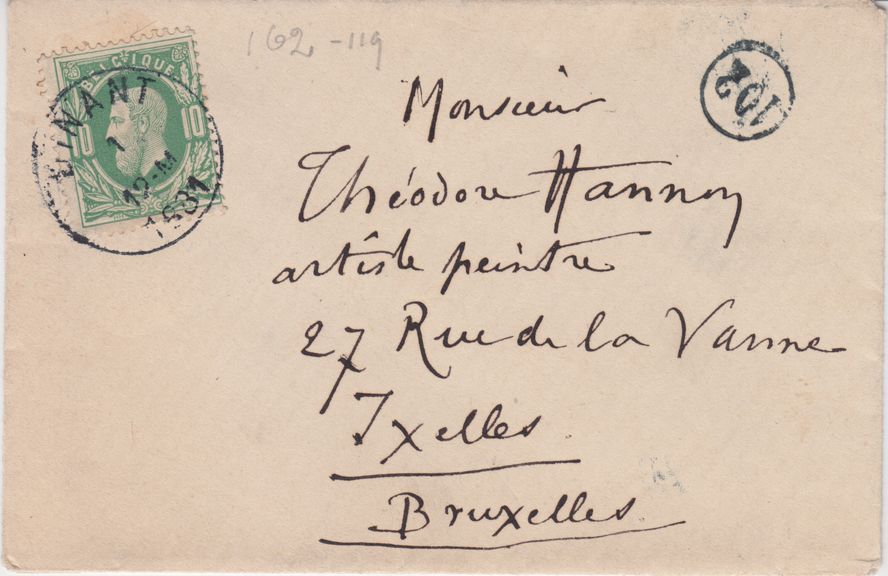 162-119
BELGIQUE
10 10
DINANT
1
12-M
1881
102
Monsieur
Théodore Hannon
artiste peintre
27 Rue de la Vanne
Ixelles
Bruxelles